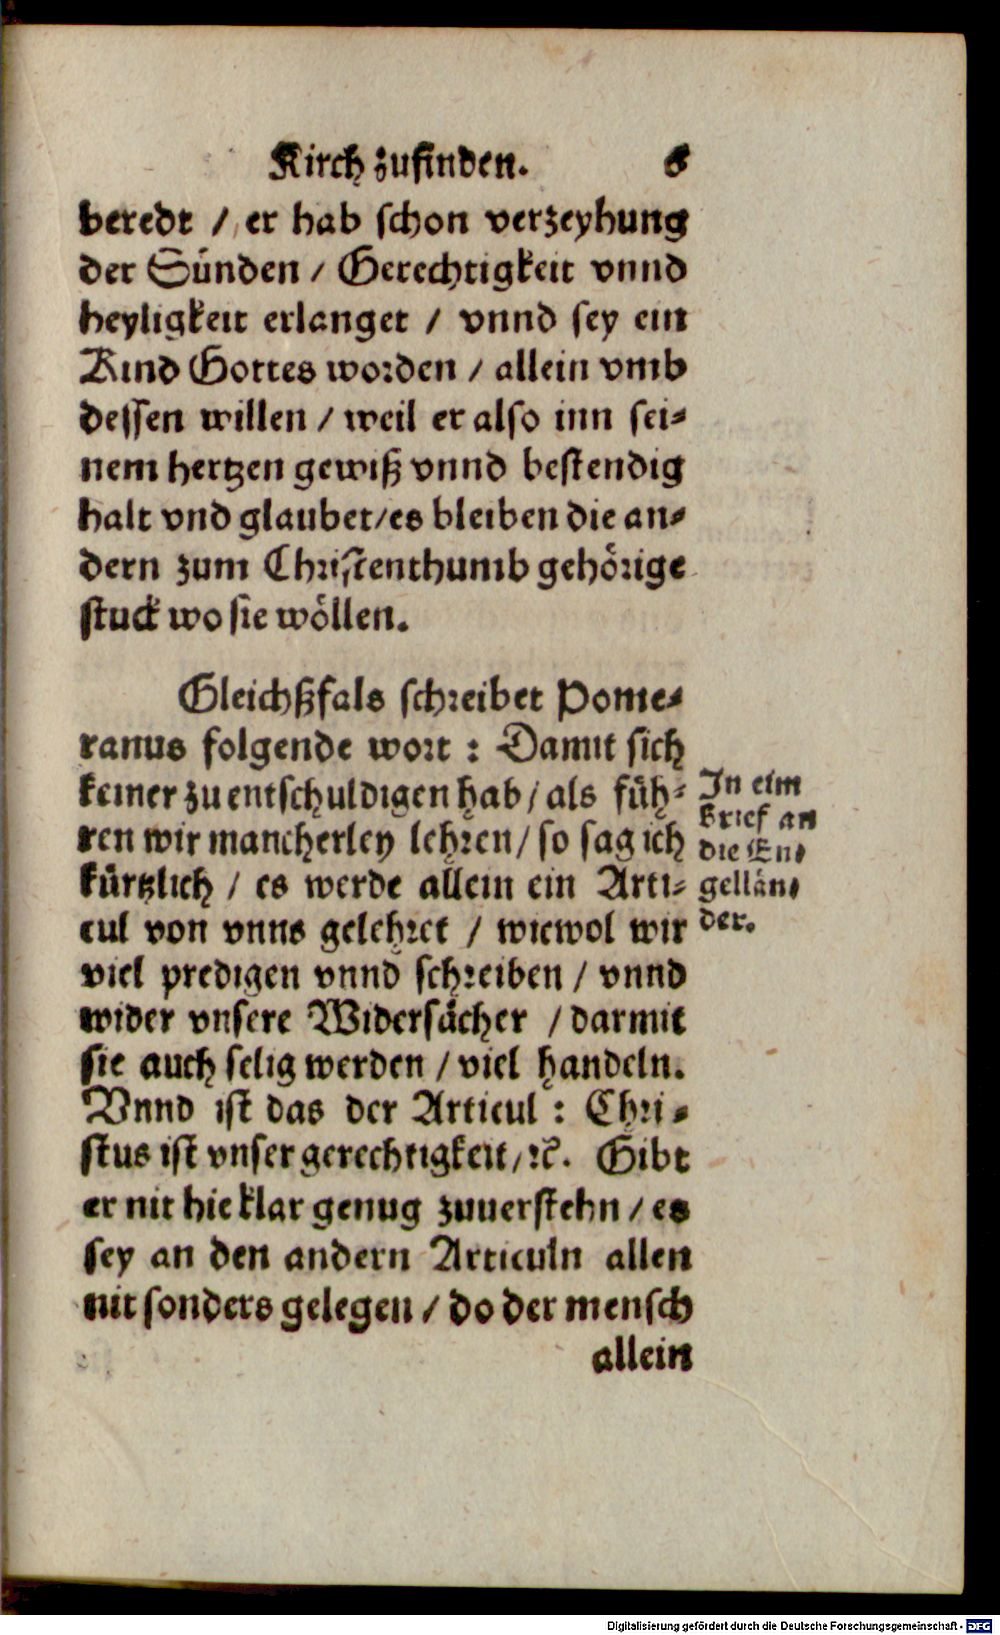 Kirch zufinden. 6
beredt / er hab schon verzeyhung
der Sünden / Gerechtigkeit vnnd
heyligkeit erlanget / vnnd sey ein
Kind Gottes worden / allein vmb
dessen willen / weil er also inn sei⸗
nem hertzen gewiß vnnd bestendig
halt vnd glaubet / es bleiben die an⸗
dern zum Christenthumb gehörige
stuck wo sie wöllen.
Gleichßfals schreibet Pome⸗
ranus folgende wort : Damit sich
keiner zu entschuldigen hab / als füh⸗
ren wir mancherley lehren / so sag ich
kürtzlich / es werde allein ein Arti⸗
cul von vnns gelehret / wiewol wir
viel predigen vnnd schreiben / vnnd
wider vnsere Widersächer / darmit
sie auch selig werden / viel handeln.
Vnnd ist das der Articul : Chri⸗
stus ist vnser gerechtigkeit / ꝛc. Gibt
er nit hie klar genug zuuerstehn / es
sey an den andern Articuln allen
nit sonders gelegen / do der mensch
allein
In eim
Brief an
die En⸗
gellän⸗
der.
Digitalisierung gefördert durch die Deutsche Forschungsgemeinschaft - DFG